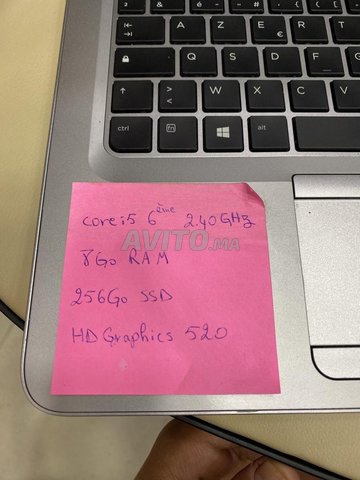 A Z E R
€
Q S D
> <
W X
ctrl fn alt
core i5 6ème 2,40GHz
AVITO.MA
8Go RAM
256Go SSD
HD Graphics 520